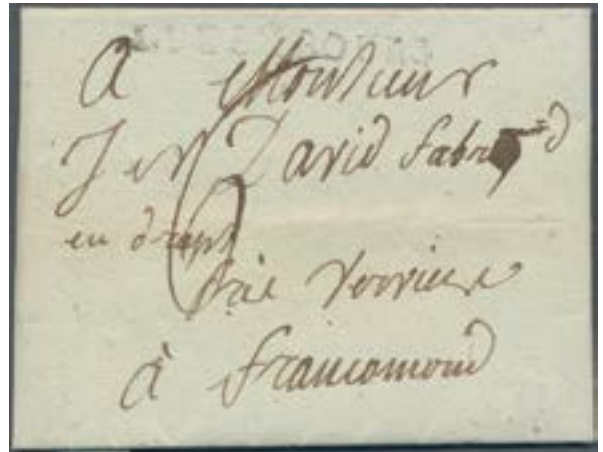 A Monsieur
J er David fabrt
en draps
Près Verviers
à francomond